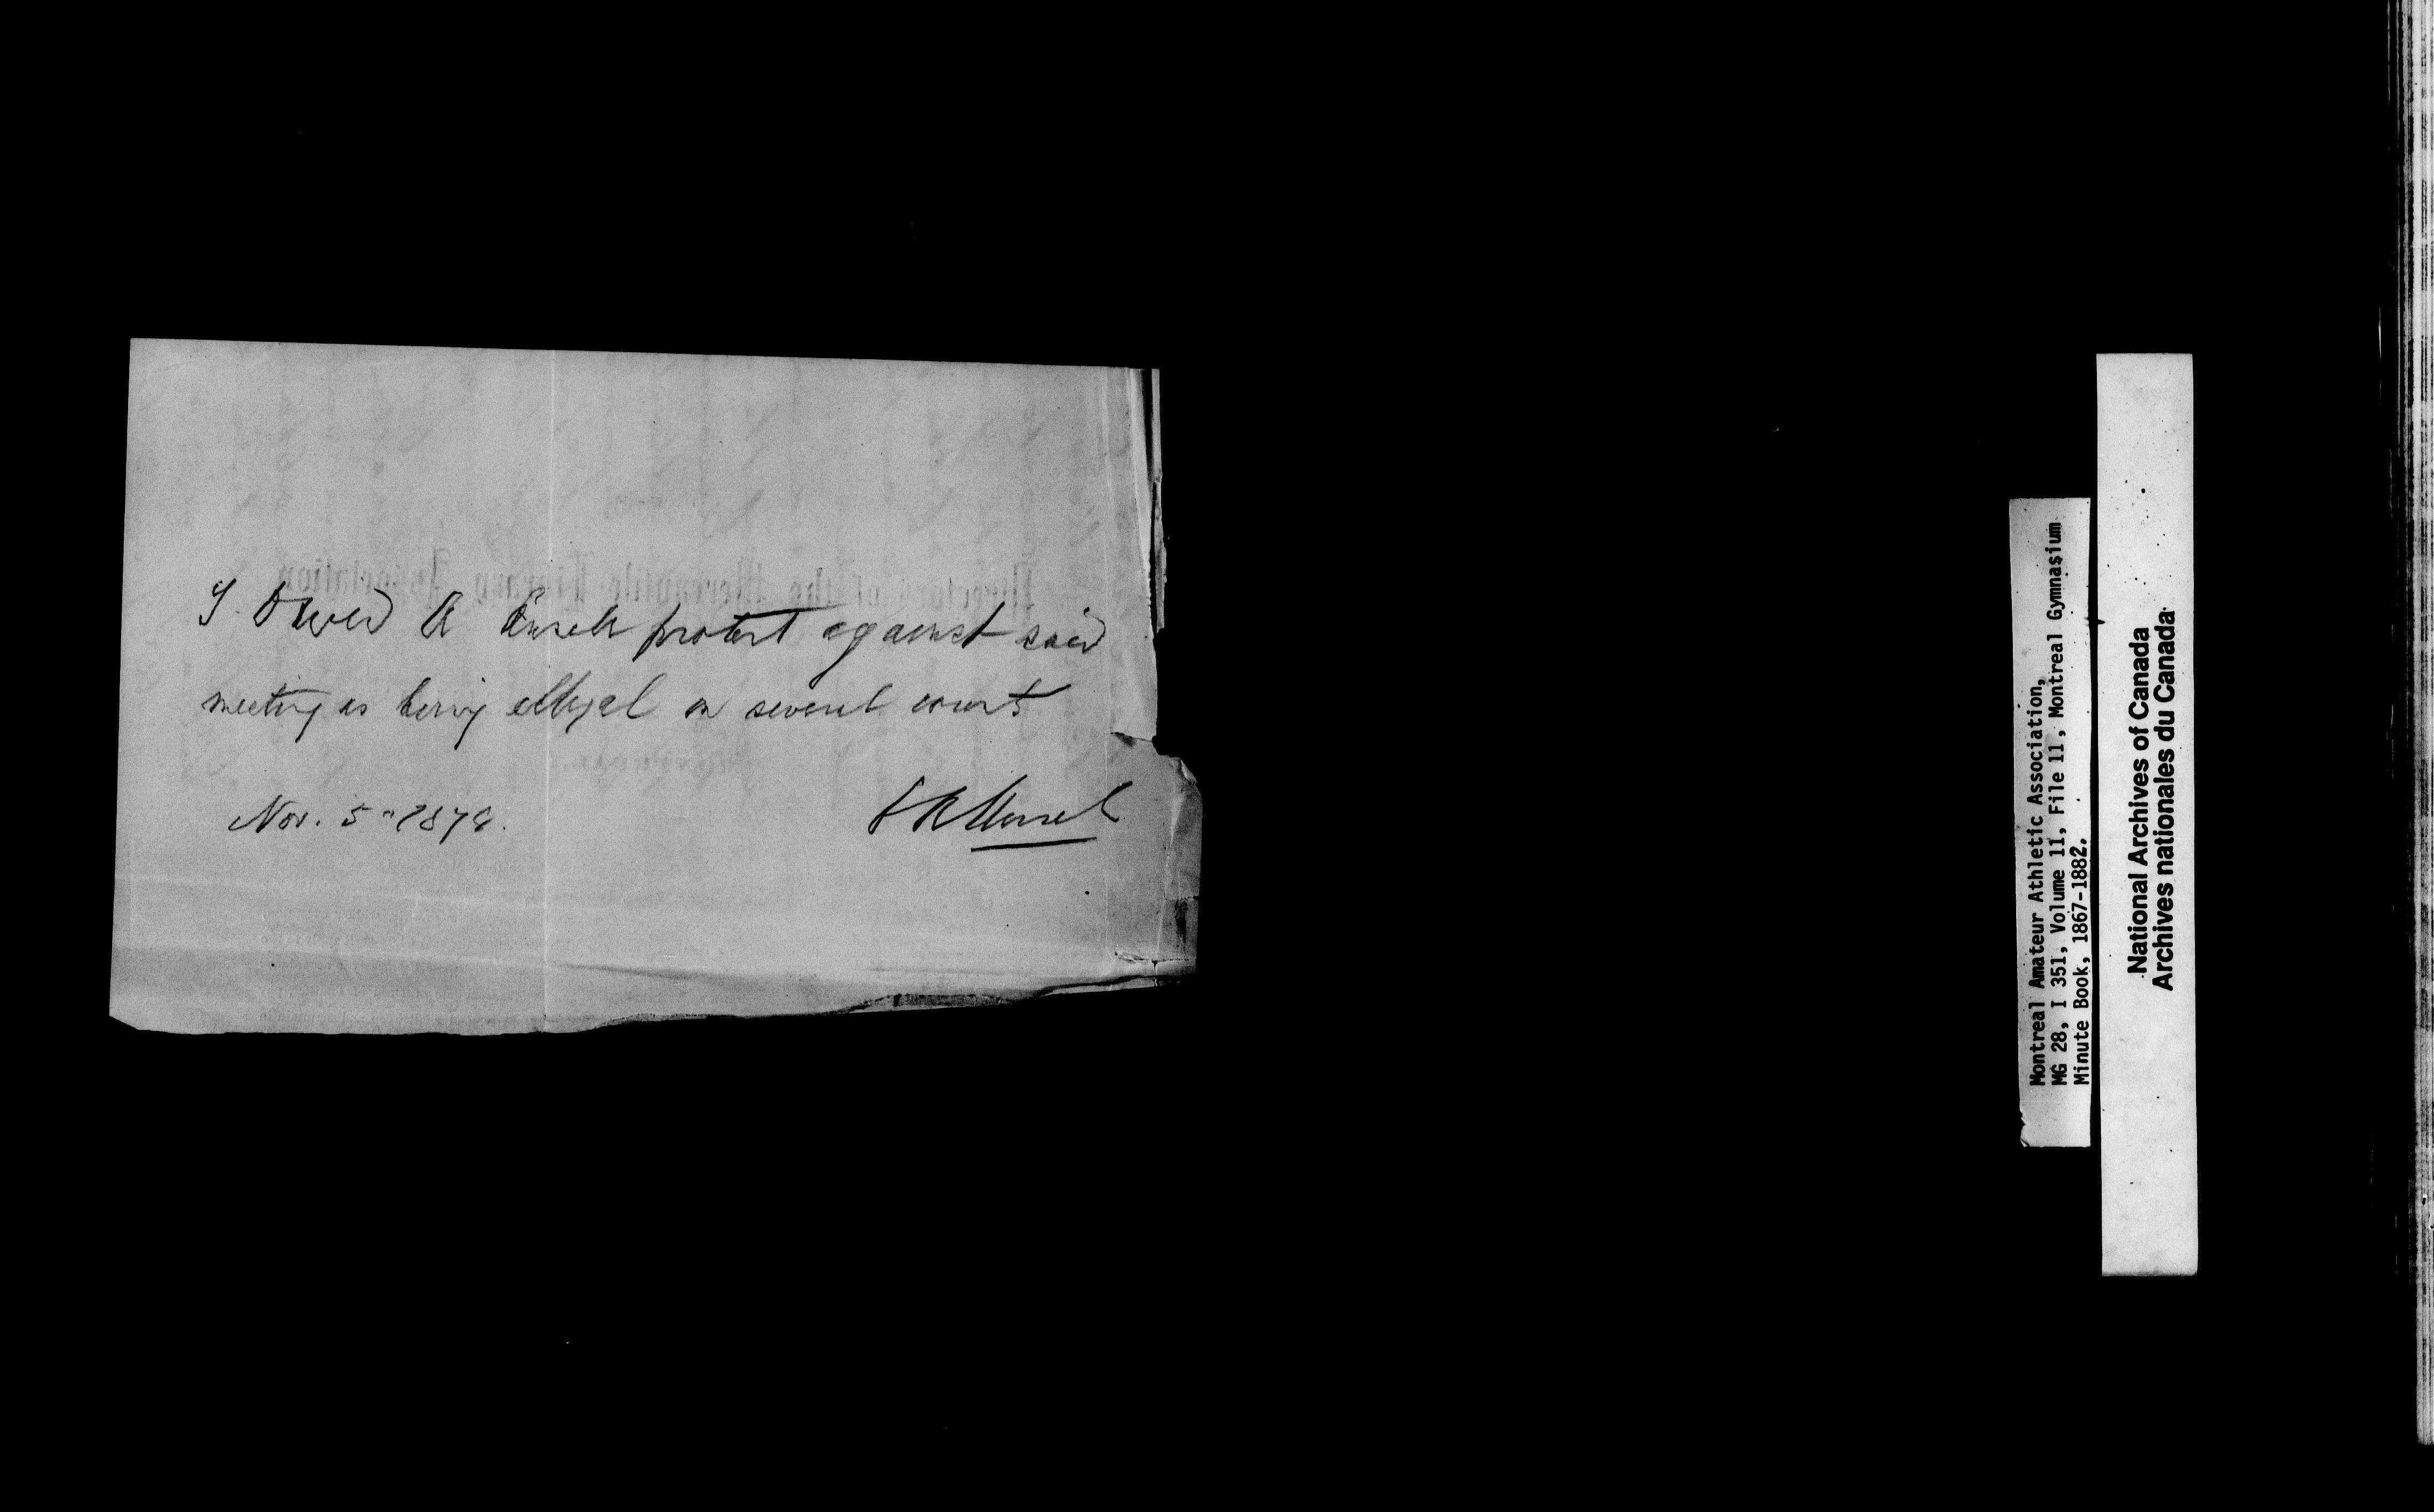 I David A protest against said
meeting as being illegal on several counts
Nov. 5" 1878.
Montreal Amateur Athletic Association,
MG 28, I 351, Volume 11, File 11, Montreal Gymnasium
Minute Book, 1867-1882.
National Archives of Canada
Archives nationales du Canada